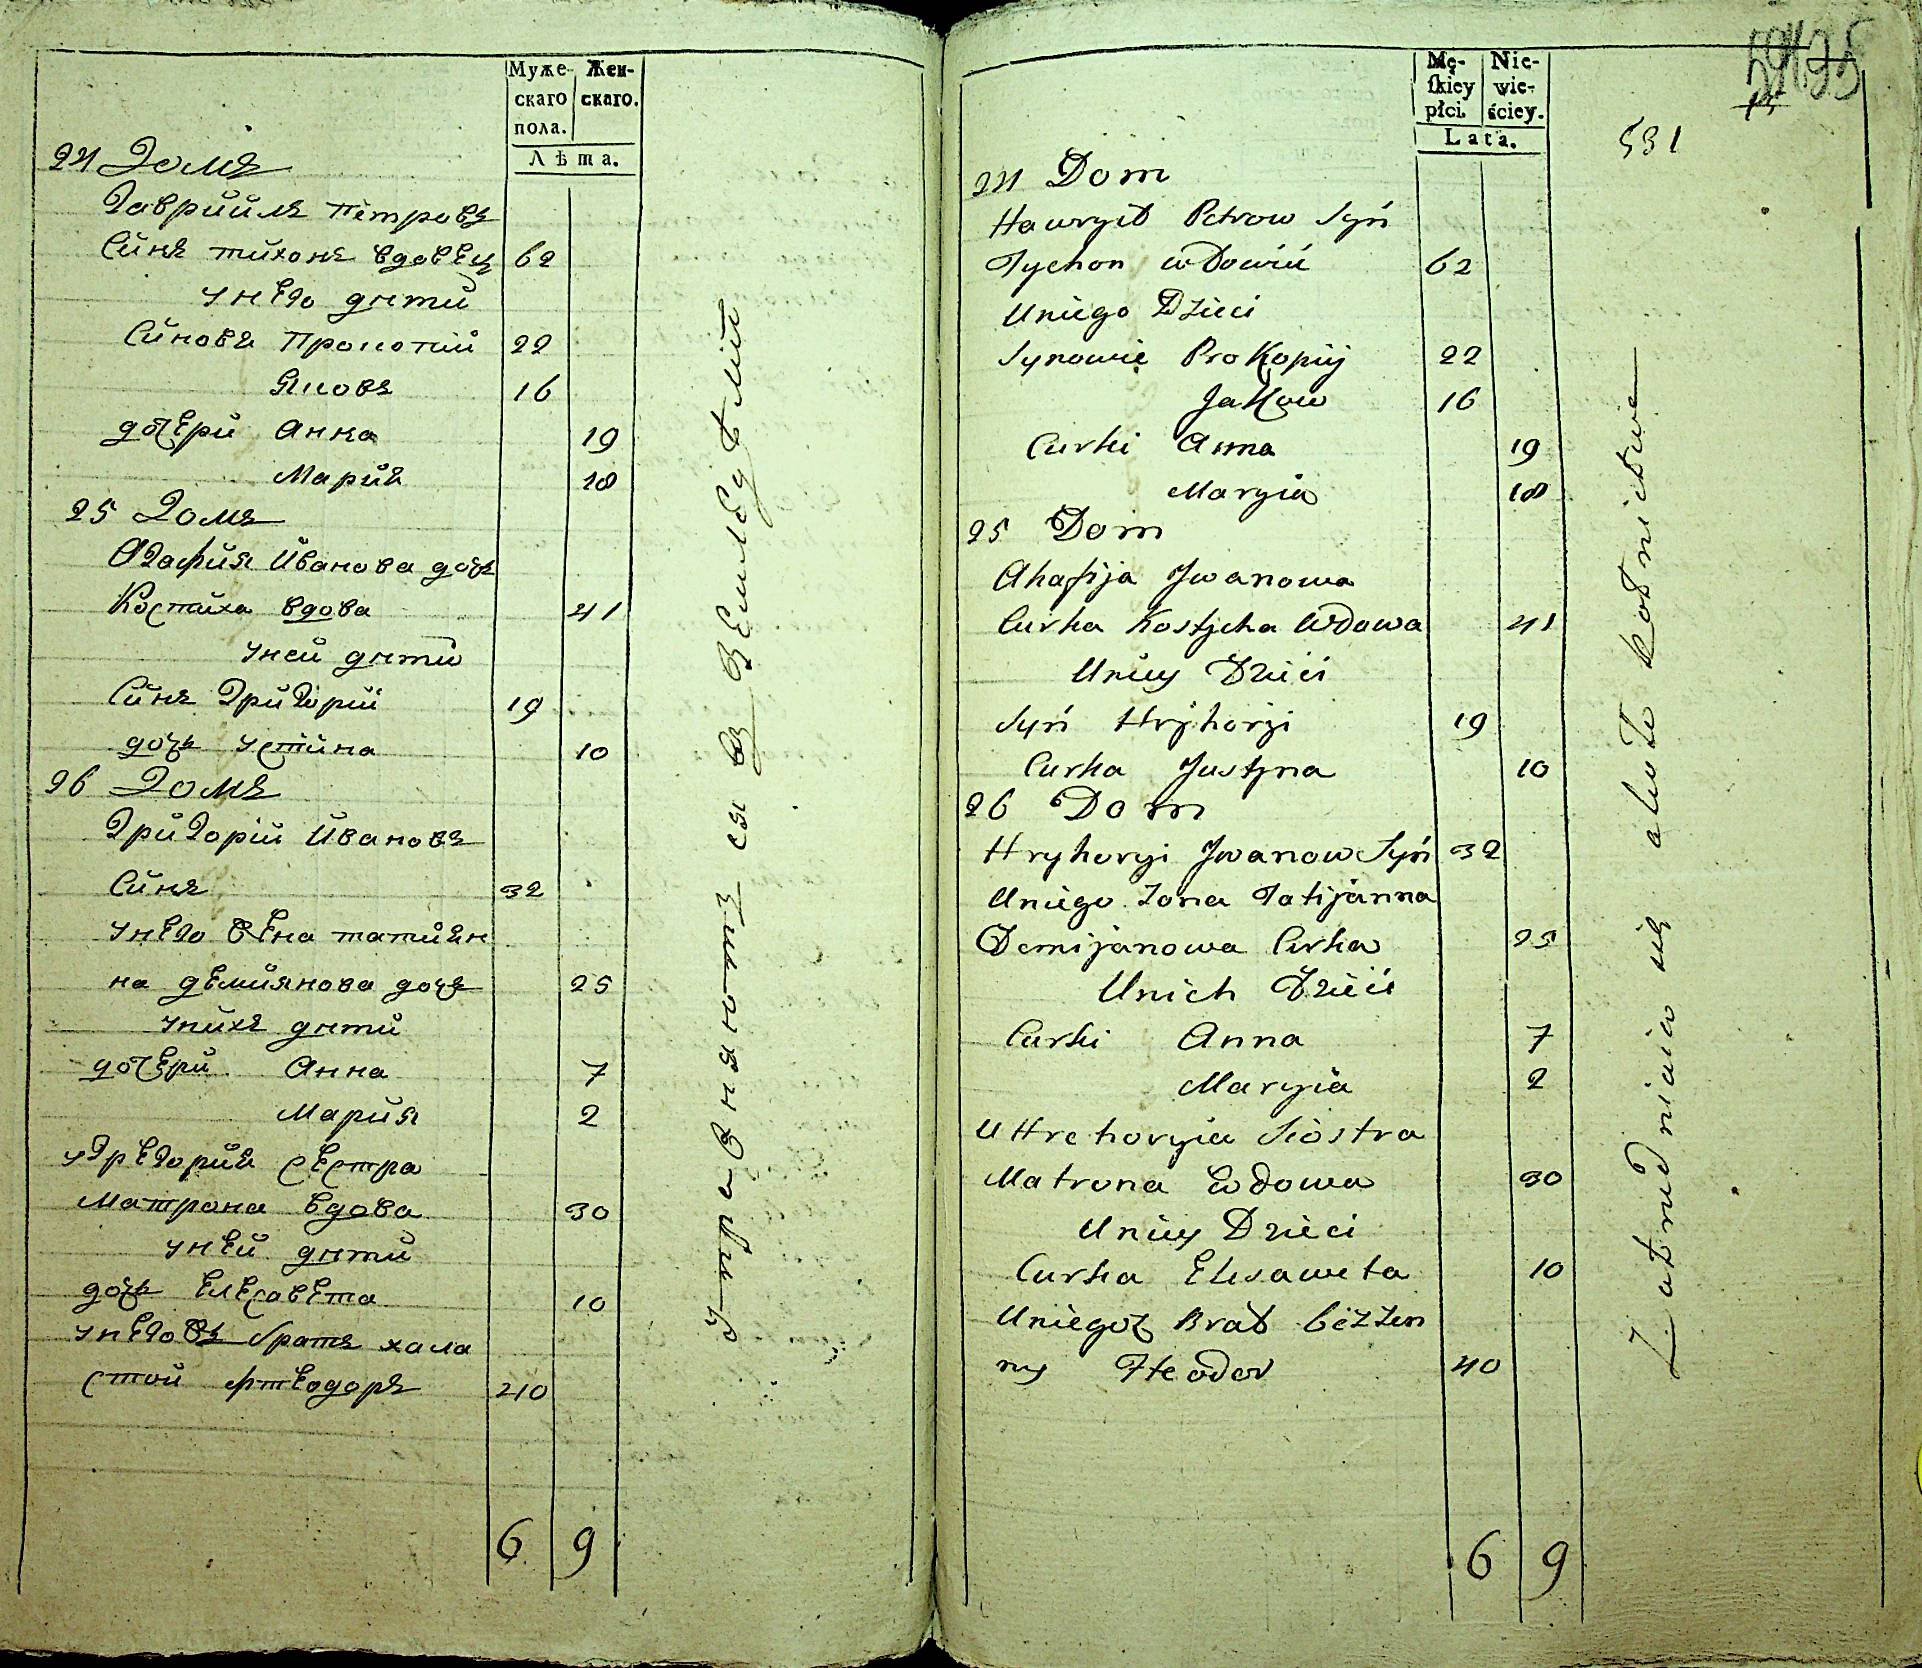 Муже-
скаго
пола.
Жен-
скаго.
Лѣта.
24 Домъ
Гаврийлъ Петровъ
Синъ тихонъ вдовец 62
унего дѣти
Синовъ Прокопий 22
Яковъ 16
дочери Анна 19
Мария 18
25 Домъ
Агафия Иванова дочь
Костиха вдова 41
уней дѣти
Синъ Григорий 19
дочь Устина 10
26 Домъ
Григорий Ивановъ
Синъ 32
унего жена татиян
на демиянова дочь 25
унихъ дѣти
дочери Анна 7
Мария 2
уГрегория сестра
Матрона вдова 30
уней дѣти
дочь Елесавета 10
унегожъ братъ хала
стой фтеодоръ 40
6 9
Упражняютъ ся въ
Mę-
skiey
płci.
Nie-
wie-
ściey.
Lata.
531
24 Dom
Hawryił Petrow Syń
Tychon wdowiu 62
Uniego Dzieci
Synowie Prokopiy 22
Jakow 16
Curki Anna 19
Maryia 18
25 Dom
Ahafija Jwanowa
Curka Kostycha Wdowa 41
Uniey Dzieci
Syń Hryhoryi 19
Curka Justyna 10
26 Dom
Hryhoryi Jwanow Syń 32
Uniego Zona Tatijanna
Demijanowa Curka 25
Unich Dzieci
Curki Anna 7
Maryia 2
U Hrehoryia Siostra
Matrona Wdowa 30
Uniey Dzieci
Curka Elesaweta 10
Uniegoż Brat beżżen
ny Fteodor 40
6 9
Zatrudniaio się około